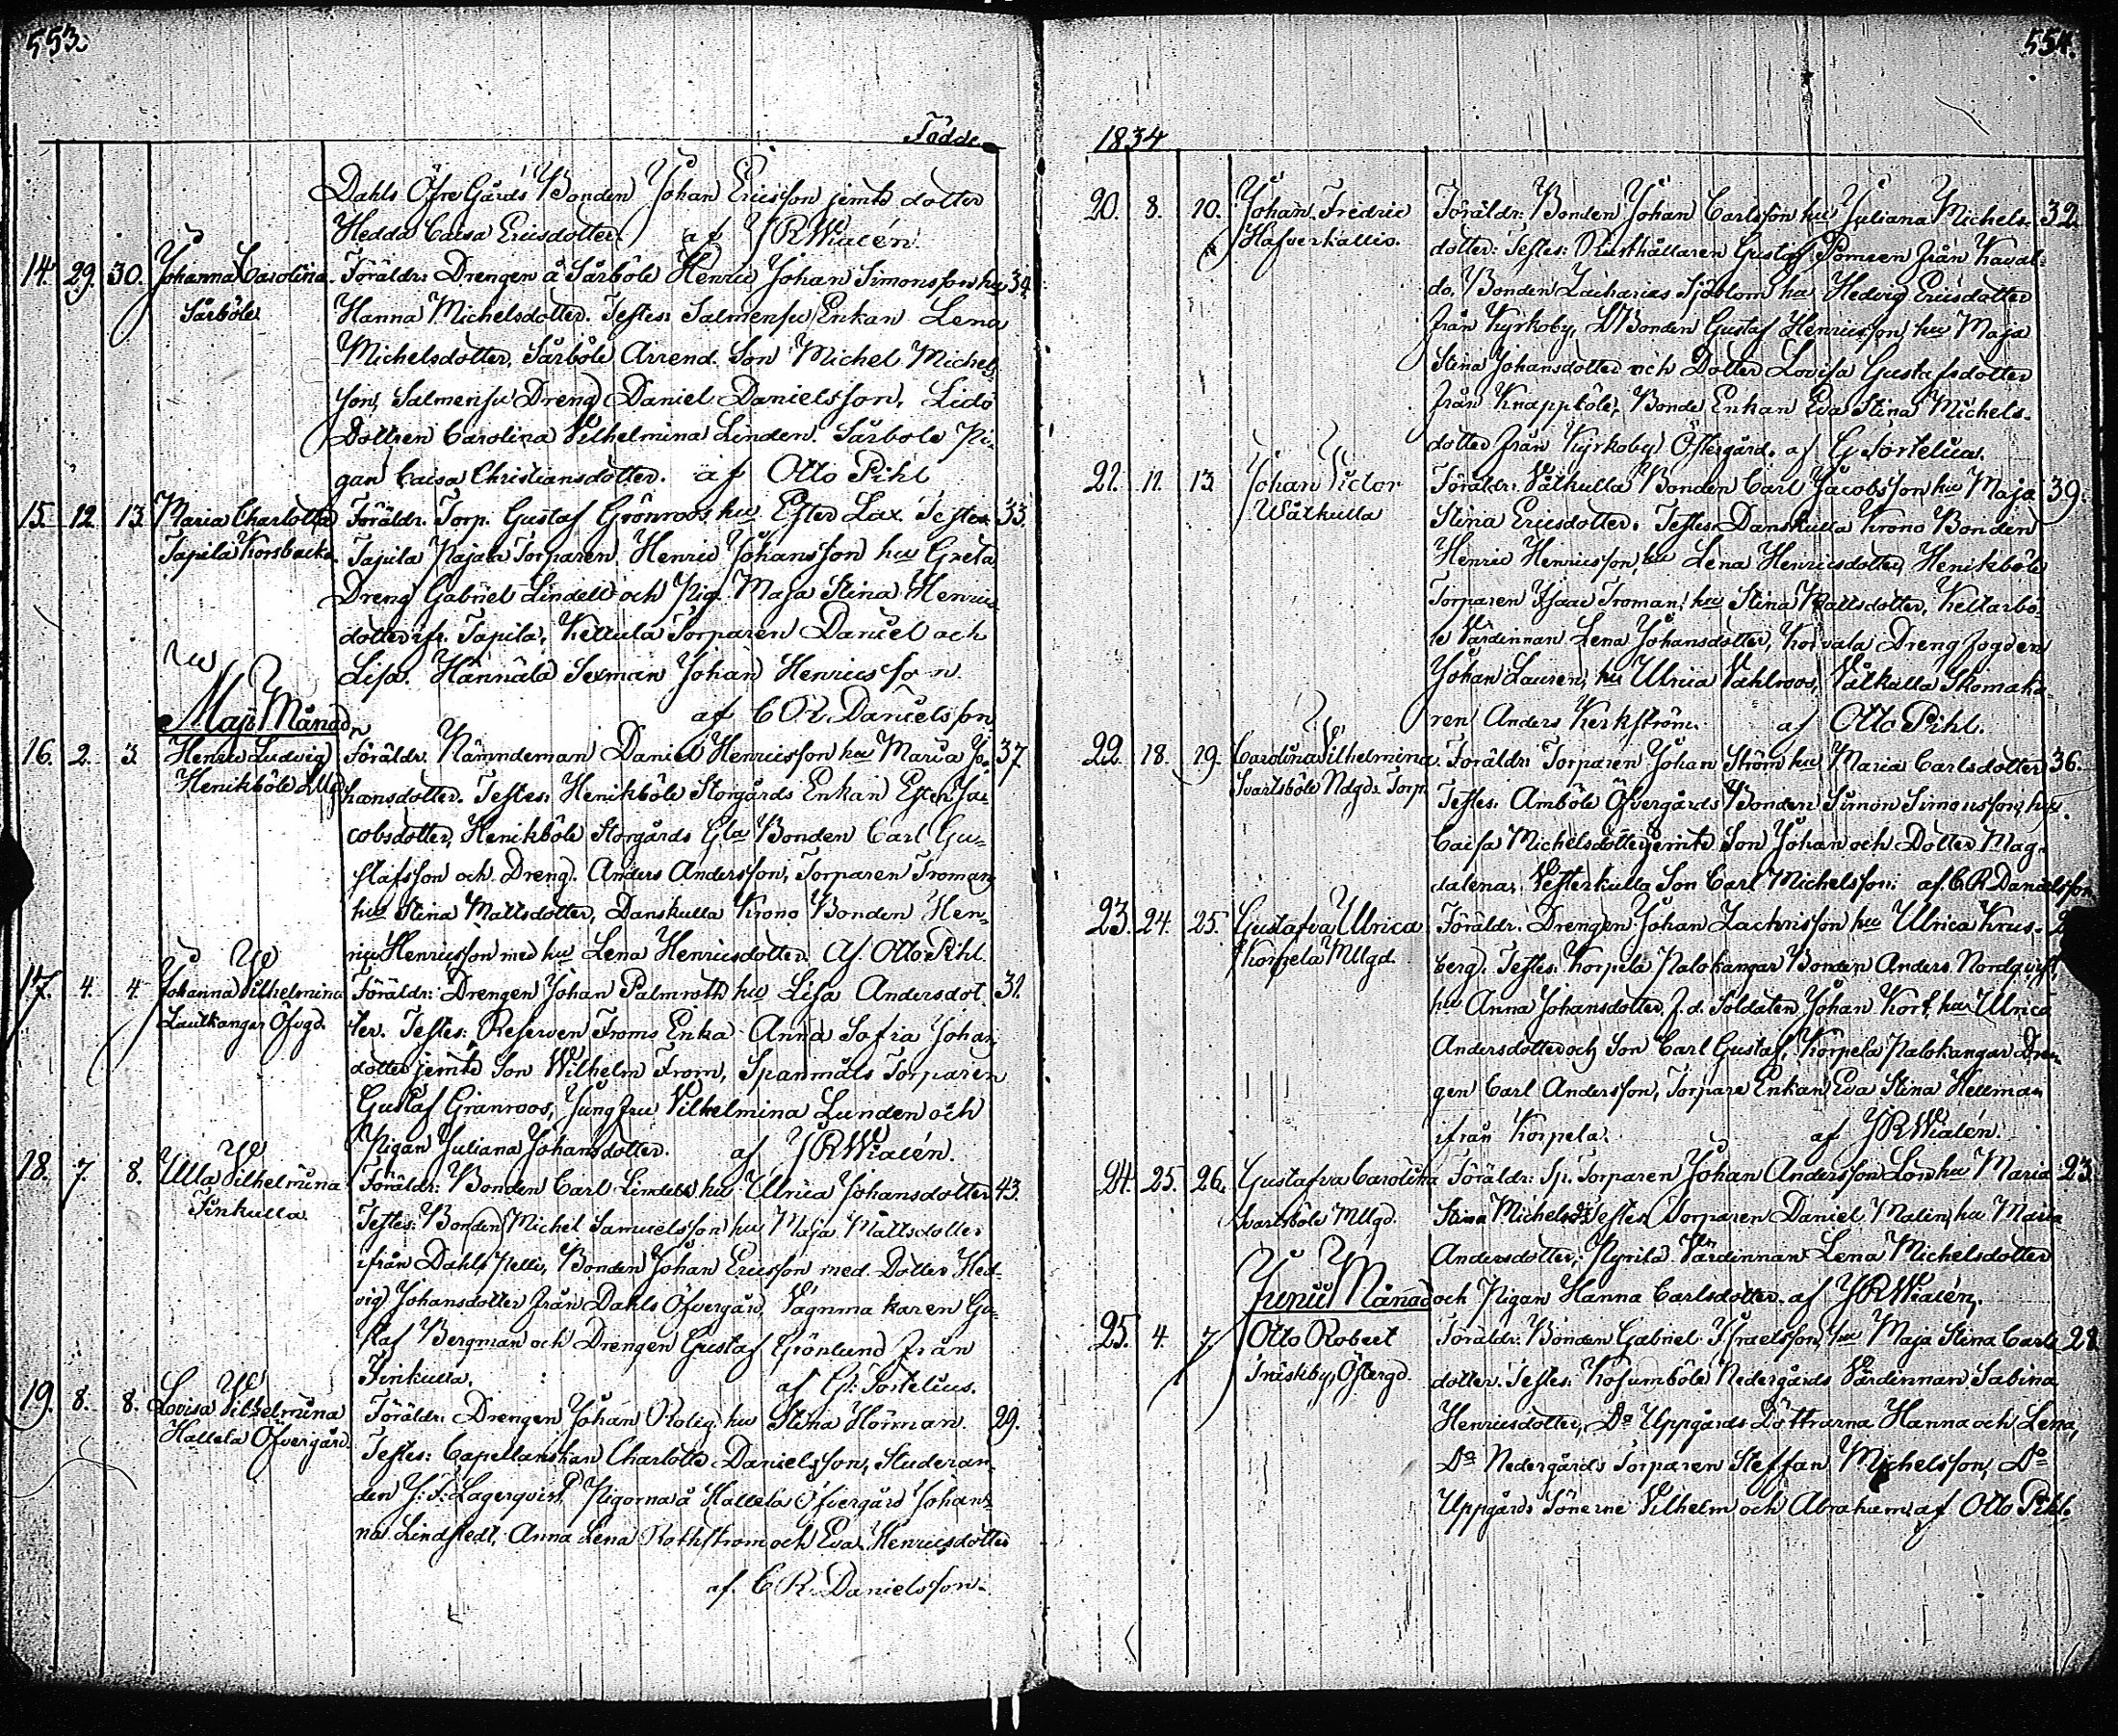 553.
Födde
Dahls Öfre Gårds Bonden Johan Ericsson jemte dotter
Hedda Caisa Ericsdotter. af J R Wialén
14. 29. 30. Johanna Carolina. Föräldr: Drengen å Sårböle Henric Johan Simonsson hu 34.
Sårböle Hanna Michelsdotter. Testes: Salmensu Enkan Lena
Michelsdotter, Sårböle Arrend. Son Michel Michels-
son, Salmensu Dreng Daniel Danielsson, Lidö
Dottren Carolina Vilhelmina Linden. Sårböle Pi-
gan Caisa Christiansdotter. af Otto Pihl
15. 12. 13. Maria Charlotta Föräldr. Torp. Gustaf Grönroos hu Ester Lax. Testes 33.
Tapila Korsbacka. Tapila Pajala Torparen Henric Johansson hu Greta
Dreng Gabriel Lindell och Pig. Maja Stina Henrics-
dotter ifr. Tapila, Kellula Torparen Daniel och
Lisa. Hännälä Sexman Johan Henricsson.
af C R Danielsson
Maji Månad
16. 2. 3. Henric Ludvig Föräldr. Nämndeman Daniel Henricsson hu Maria Jo- 37.
Henikböle Llgd hansdotter. Testes: Henikböle Storgårds Enkan Ester Ja-
cobsdotter, Henikböle Storgårds Gla Bonden Carl Gu-
stafsson och Dreng. Anders Andersson, Torparen Troman
hu Stina Mattsdotter, Danskulla Krono Bonden Hen-
ric Henricsson med hu Lena Henricsdotter. Af. Otto Pihl.
17. 4. 4. Johanna Vilhelmina Föräldr: Drengen Johan Palmroth hu Lisa Andersdot- 31.
Lautkangar Öfvgd. ter. Testes: Reserven Froms Enka Anna Sofia Johans
dotter jemte Son Wilhelm From, Spanmåls Torparen
Gustaf Granroos, Jungfru Vilhelmina Lunden och
Pigan Juliana Johansdotter. af J R Wialén.
18. 7. 8. Ulla Vilhelmina Föräldr: Bonden Carl Lindell hu Ulrica Johansdotter 43.
Finkulla. Testes: Bonden Michel Samuelsson hu Maja Mattsdotter
ifrån Dahls Pelli, Bonden Johan Ericsson med Dotter Hed-
vig Johansdotter från Dahls Öfvergård, Vagnmakaren Gu-
staf Bergman och Drengen Gustaf Grönlund från
Finkulla. af G. Fortelius.
19. 8. 8. Lovisa Vilhelmina Föräldr: Drengen Johan Rolig hu Stina Hörman. 29.
Hallela Öfvergård. Testes: Capellanskan Charlotte Danielsson, Studeran-
den J: F: Lagerqvist, Pigorna å Hallela Öfvergård Johan-
na Lindstedt, Anna Lena Rothström och Eva Henricsdotter
af. C R. Danielsson.
554.
1834
20. 8. 10. Johan Fredric Föräldr: Bonden Johan Carlsson hu Juliana Michels- 32.
Hafverkallio. dotter: Testes: Rusthållaren Gustaf Pomren från Kaval-
do. Bonden Zacharias Sjöblom hu Hedvig Ericsdotter
från Kyrkoby, Bonden Gustaf Henricsson hu Maja
Stina Johansdotter och Dotter Lovisa Gustafsdotter
från Knappböle, Bonde Enkan Eva Stina Michels-
dotter från Kyrkoby Östergård. af G Fortelius.
21. 11. 13. Johan Victor Föräldr: Våtkulla Bonden Carl Jacobsson hu Maja 39.
Wåtkulla Stina Ericsdotter. Testes: Danskulla Krono Bonden
Henric Henricsson, hu Lena Henricsdotter, Henikböle
Torparen Isaac Troman, hu Stina Mattsdotter, Kellarbö-
le Värdinnan Lena Johansdotter, Koivala Drengfogden
Johan Lauren, hu Ulrica Vahlroos, Våtkulla Skomaka-
ren Anders Kerkström. af Otto Pihl.
22. 18. 19. Carolina Vilhelmina. Föräldr: Torparen Johan Ström hu Maria Carlsdotter 36.
Svartsböle Ndgds Torp. Testes: Amböle Öfvergårds Bonden Simon Simonsson, hu
Caisa Michelsdotter jemte Son Johan och Dotter Mag-
dalena, Vesterkulla Son Carl Michelsson. af. C R Danielsson
23. 24. 25. Gustafva Ulrica Föräldr. Drengen Johan Zachrisson hu Ulrica Krus-
Korpela Mllgd. berg. Testes: Korpela Palokangar Bonden Anders Nordqvist,
hu Anna Johansdotter, f. d. Soldaten Johan Kort, hu Ulrica
Andersdotter och Son Carl Gustaf, Korpela Palokangar Dren-
gen Carl Andersson, Torpare Enkan Eva Stina Hellman
ifrån Korpela. af J R Wialén.
24. 25. 26. Gustafva Carolina Föräldr: Sp. Torparen Johan Andersson Lon hu Maria 23.
Svartsböle Mllgd. Stina Michelsdr Testes Torparen Daniel Malin, hu Maria
Andersdotter, Pyrilä Värdinnan Lena Michelsdotter
Junii Månad och Pigan Hanna Carlsdotter. af J R Wialén.
25. 4. 7. Otto Robert Föräldr: Bonden Gabriel Israelsson, hu Maja Stina Carls- 28
Träskby, Östergd. dotter. Testes: Kosumböle Nedergårds Värdinnan Sabina
Henricsdotter, Do Uppgårds Döttrarna Hanna och Lena,
Do Nedergårds Torparen Steffan Michelsson, Do
Uppgårds Sönerne Vilhelm och Abraham. af Otto Pihl.